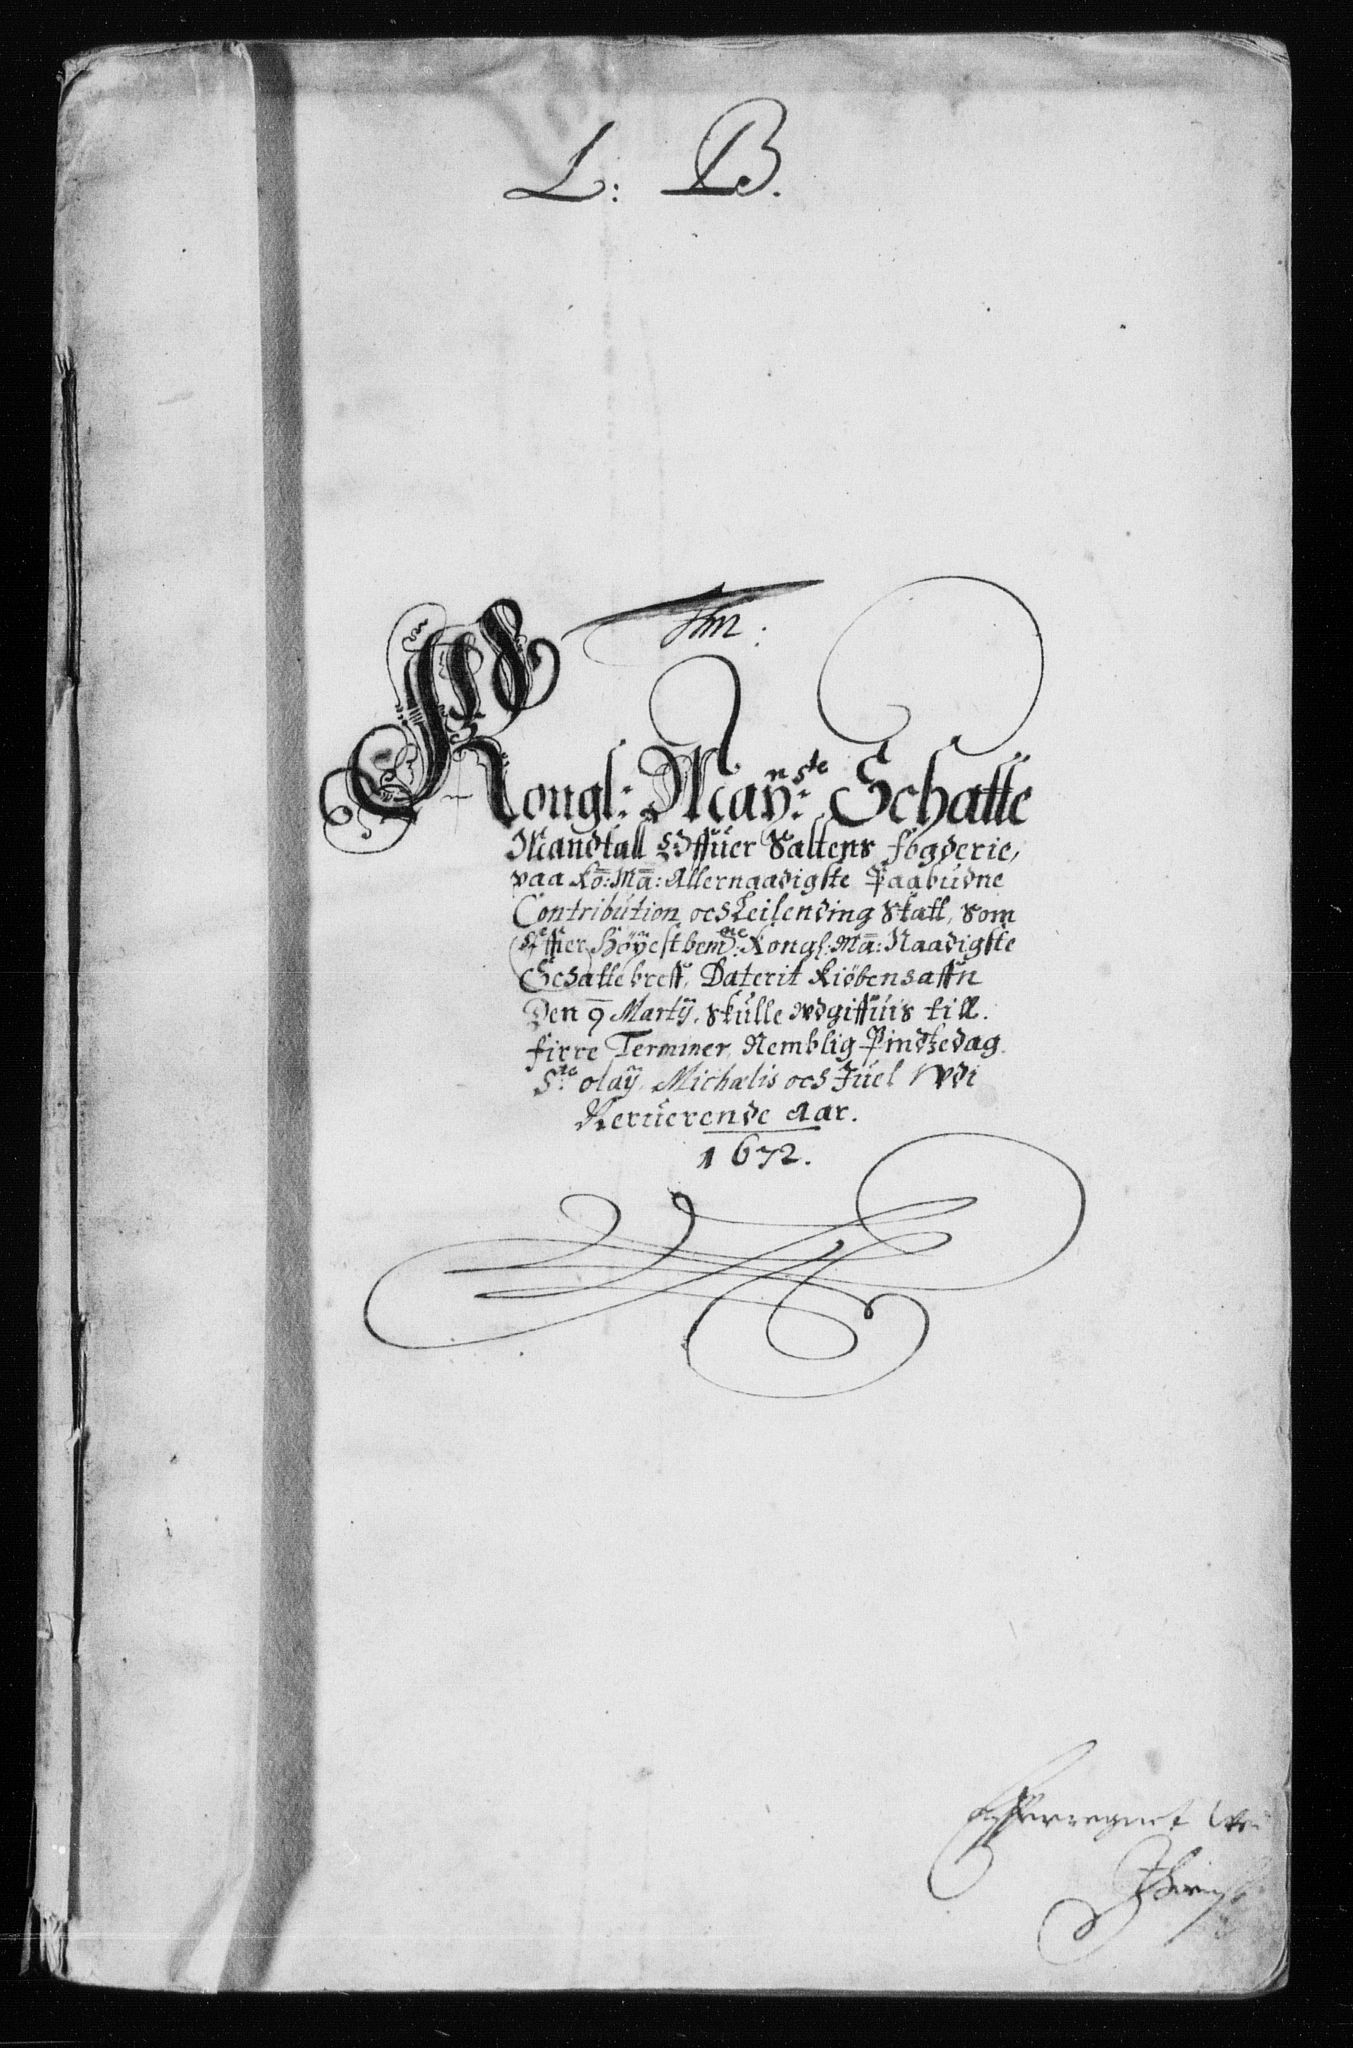 L: B.
Kongl: Mayn.ste Schatte
Mandtall Offuer Saltens fogderie,
paa Ko: Ma: Allernaadigste Paabudne
Contribution och Leilending Skatt, som
Effter Höÿestbemte: Kongl: Ma: Naadigste
Schattebreff, Daterit Kiöbenhaffn
Den 9 Martÿ. Skulle vdgiffuis till
firre Terminer, Nemblig Pindtzedag
Ste olaÿ, Michælis och Juel vdi
Neruerende Aar.
1672.
Efterregnet